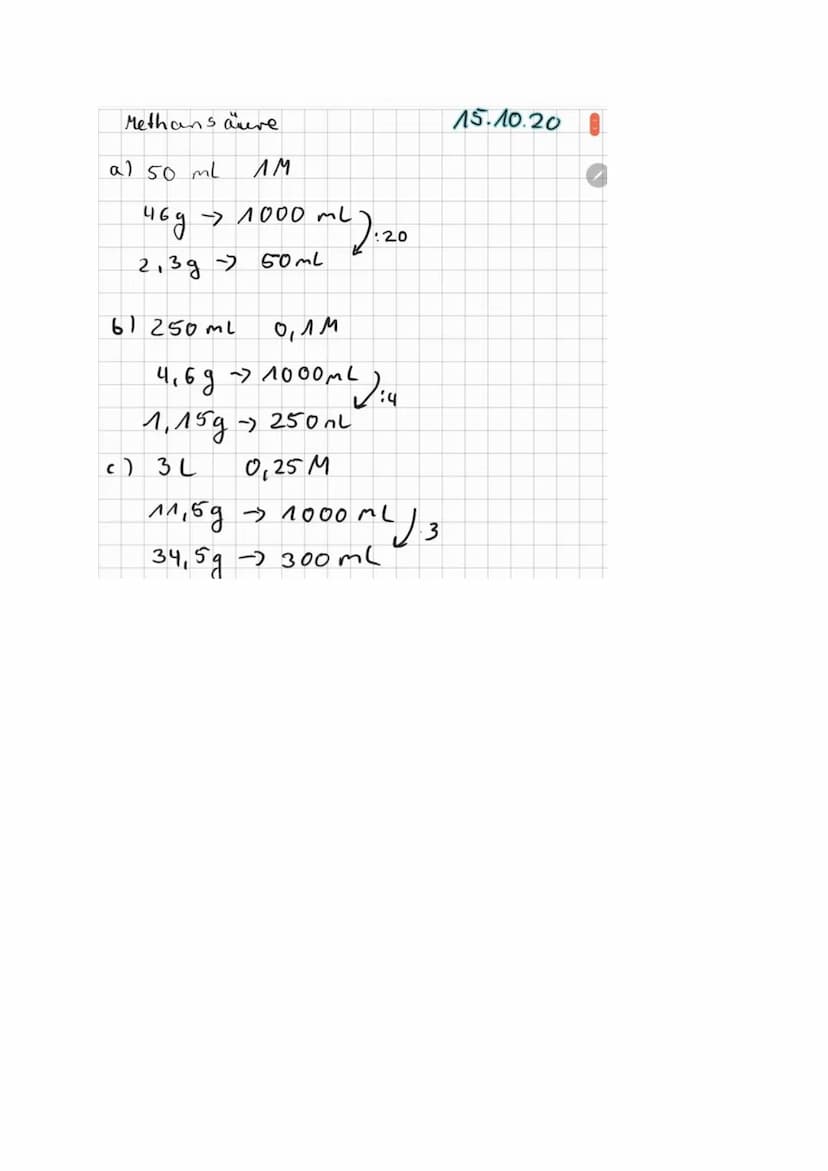 Methansäure 15.10.20
a) 50 ml 1M
46g → 1000 mL
:20
2,3g → 50mL
b) 250 mL 0,1M
4,6g → 1000mL
:4
1,15g → 250mL
c) 3L 0,25M
11,5g → 1000 mL
·3
34,5g → 300mL